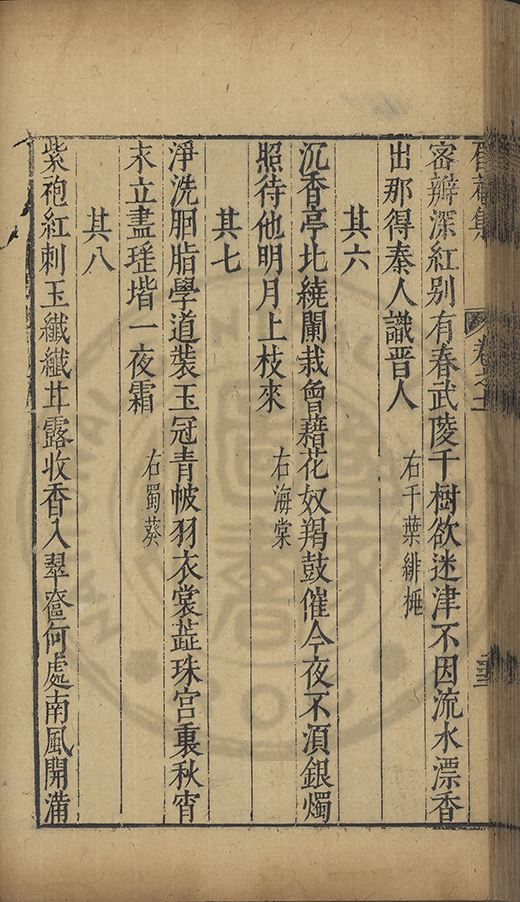 密瓣深紅别有春武陵千樹欲迷津不因流水漂香
出那得秦人識晋人 右千葉緋桃
其六
沉香亭北繞闌栽曾藉花奴羯鼓催今夜不湏銀燭
照待他明月上枝來 右海棠
其七
淨洗胭脂學道裝玉冠青帔羽衣裳蕋珠宫裏秋宵
永立盡瑤堦一夜霜 右蜀葵
其八
紫袍紅刺玉纖纖甘露收香入翠奩何處南風開滿